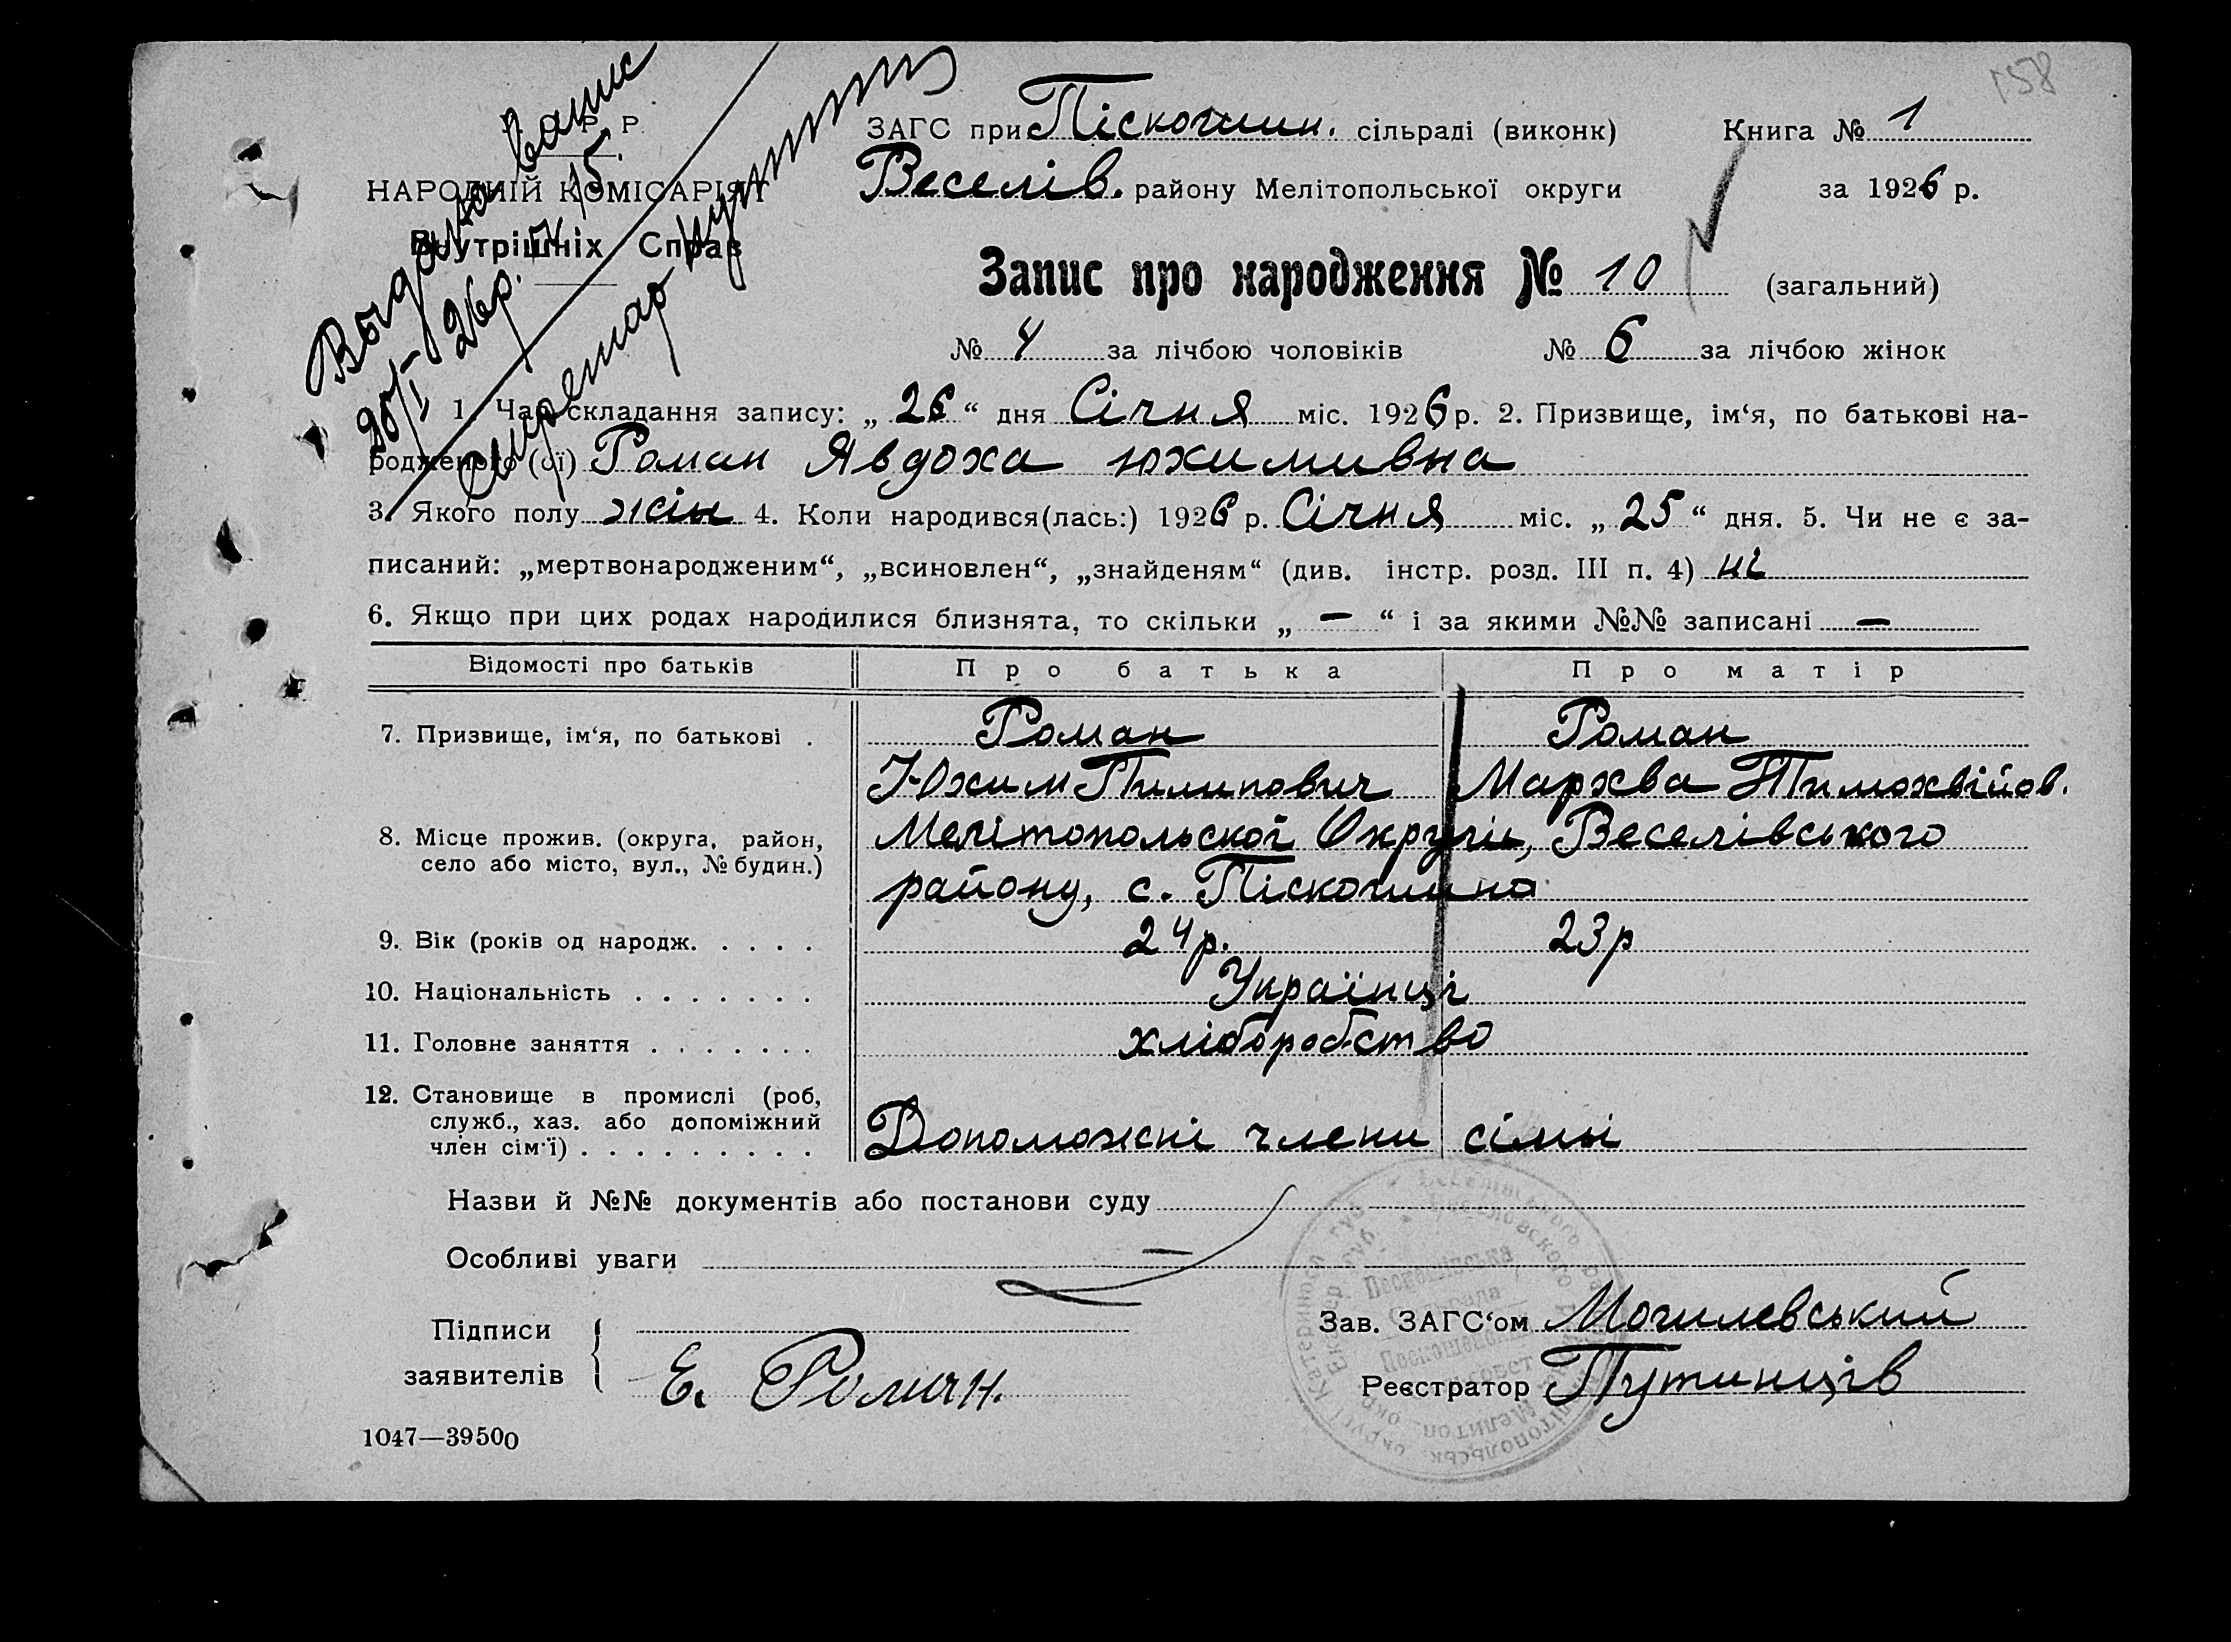 158
У. С. Р. Р.
НАРОДНІЙ КОМІСАРІЯТ
Внутрішніх Справ
Выдана
№ 15
26р.
Секретар
ЗАГС при Піскошин. сільраді (виконк)
Книга № 1
Веселів. району Мелітопольської округи
за 1926 р.
Запис про народження № 10 (загальний)
№ 4 за лічбою чоловіків № 6 за лічбою жінок
1. Час складання запису: „ 26 “ дня Січня міс. 1926 р. 2. Призвище, ім‘я, по батькові на-
родженого (ої) Роман Явдоха Юхимивна
3. Якого полу жін 4. Коли народився(лась:) 1926 р. Січня міс. „ 25 “ дня. 5. Чи не є за-
писаний: „мертвонародженим“, „всиновлен“, „знайденям“ (див. інстр. розд. III п. 4) ні
6. Якщо при цих родах народилися близнята, то скільки „ — “ і за якими №№ записані —
Відомості про батьків Про батька Про матір
7. Призвище, ім‘я, по батькові . Роман Роман
Юхим Пилипович Мархва Тимохвійов.
8. Місце прожив. (округа, район, Мелітопольскої Округи, Веселівського
село або місто, вул., № будин.) району, с. Піскошина
9. Вік (років од народж. . . . . 24р. 23р
10. Національність . . . . . . . Українці
11. Головне заняття . . . . . . . хлiборобство
12. Становище в промислі (роб,
служб., хаз. або допоміжний
член сім‘ї) . . . . . . . . . Допоможні члени сімьі
Назви й №№ документів або постанови суду
Особливі уваги —
Підписи
заявителів
Е. Роман.
Зав. ЗАГС‘ом Могилевський
Реєстратор Путинців
1047—39500